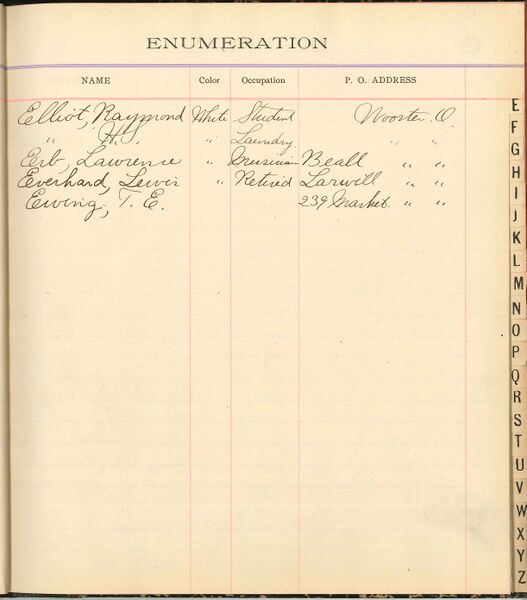 ENUMERATION
NAME Color Occupation P. O. ADDRESS
Elliot, Raymond White Student Wooster. O.
" H. J. Laundry " "
Erb, Lawrence " Musician Beall " "
Everhard, Lewis " Retired Larwill " "
Ewing, T. E. 239 Market. " "
E
F
G
H
I
J
K
L
M
N
O
P
Q
R
S
T
U
V
W
X
Y
Z